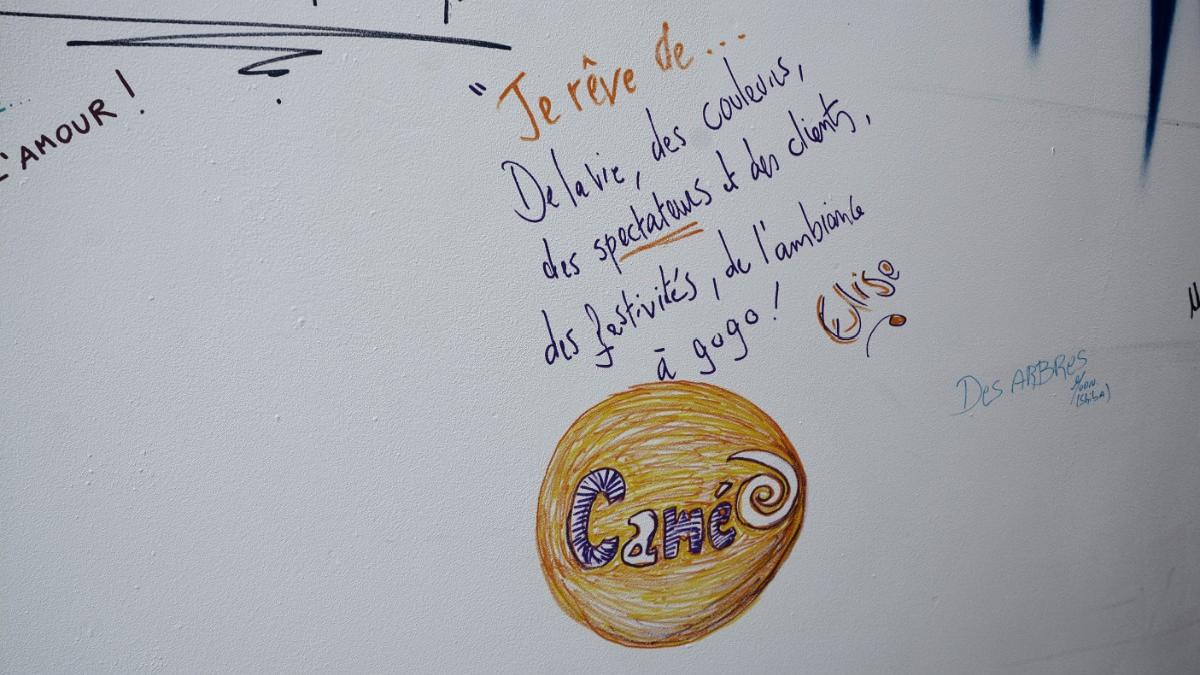 L'AMOUR !
" Je rêve de ...
De la vie, des couleurs,
des spectateurs et des clients,
des festivités, de l'ambiance
à gogo !
Elise
Des ARBRES
Caméo